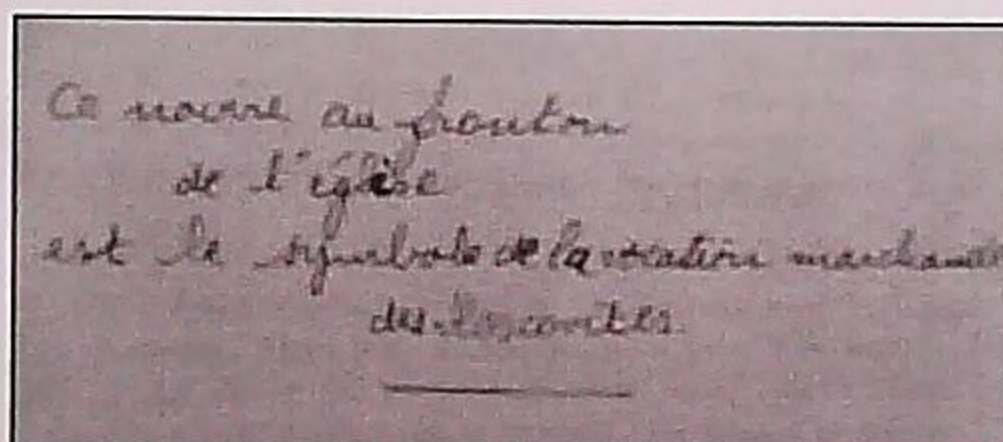 Ce navire au fronton
de l'église
est le symbole de la vocation marchande
des